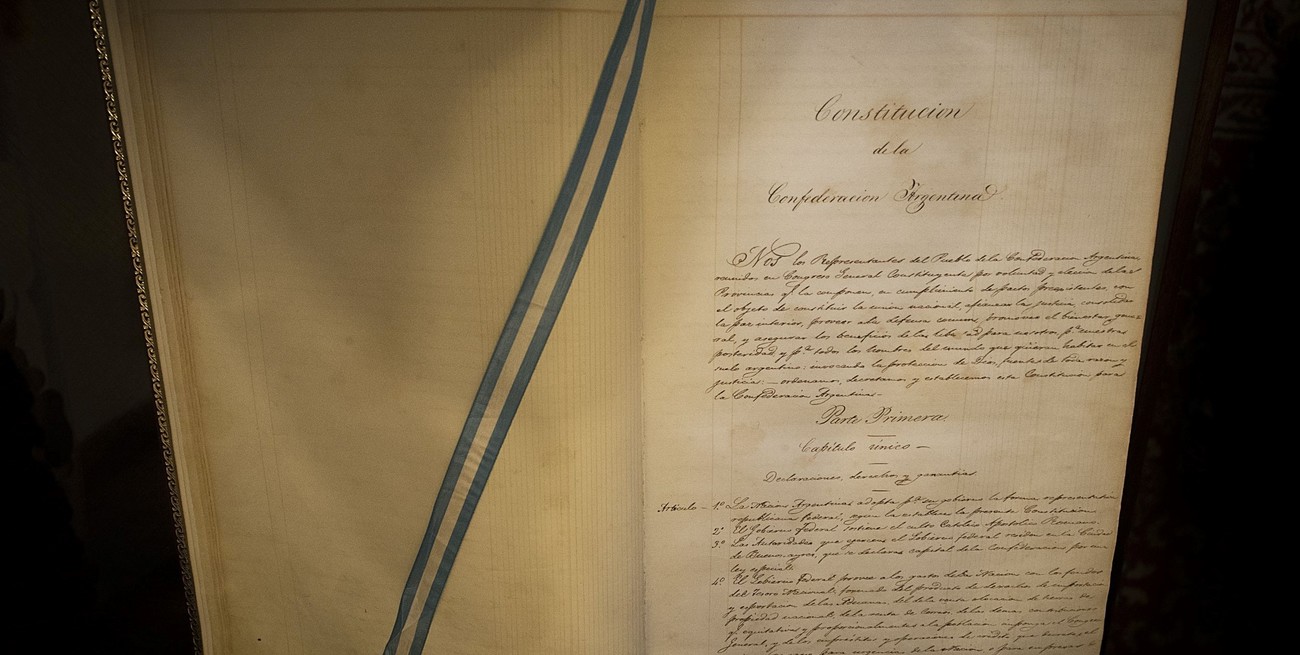 Constitucion
de la
Confederacion Argentina
Nos los Representantes del Pueblo de la Confederacion Argentina,
reunidos en Congreso General Constituyente por voluntad y eleccion de las
Provincias qe. la componen, en cumplimiento de pactos preexistentes, con
el objeto de constituir la union nacional, afianzar la justicia, consolidar
la paz interior, proveer a la defensa comun, promover el bienestar gene-
ral, y asegurar los beneficios de la libertad para nosotros pa. nuestra
posteridad y pa. todos los hombres del mundo que quieran habitar en el
suelo argentino: invocando la proteccion de Dios, fuente de toda razon y
justicia: — ordenamos, decretamos y establecemos esta Constitucion para
la Confederacion Argentina. —
Parte Primera.
Capitulo único —
Declaraciones, derechos y garantias.
Articulo — 1º La Nacion Argentina adopta pa. su gobierno la forma representativa
republicana federal, segun la establece la presente Constitucion.
2º El Gobierno Federal sostiene el culto Catolico Apostolico Romano.
3º Las Autoridades que ejercen el Gobierno federal residen en la Ciudad
de Buenos-ayres, que se declara capital de la Confederacion por una
ley especial.
4º El Gobierno Federal provee a los gastos de la Nacion con los fondos
del Tesoro Nacional, formado del producto de derechos de importacion
y esportacion de las Aduanas, del de la venta o locacion de tierras de
propiedad nacional, de la renta de Correos, de las demas contribuciones
qe. equitativa y proporcionalmente a la poblacion imponga el Congreso
General, y de los empréstitos y operaciones de credito que decrete el